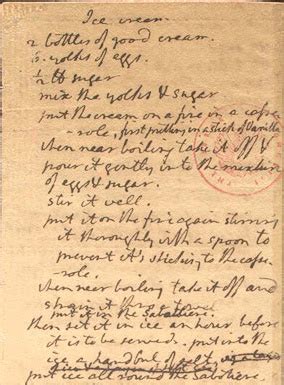 Ice cream.
2 bottles of good cream.
6. yolks of eggs.
1/2 lb sugar
mix the yolks & sugar
put the cream on a fire in a casse-
-role, first putting in a stick of Vanilla.
when near boiling take it off &
pour it gently into the mixture
of eggs & sugar.
stir it well.
put it on the fire again stirring
it thoroughly with a spoon to
prevent it's sticking to the casse-
-role.
when near boiling take it off and
strain it thro' a towel.
put it in the Sabottiere.
then set it in ice an hour before
it is to be served. put into the
ice a handful of salt.
put ice all round the Sabottiere